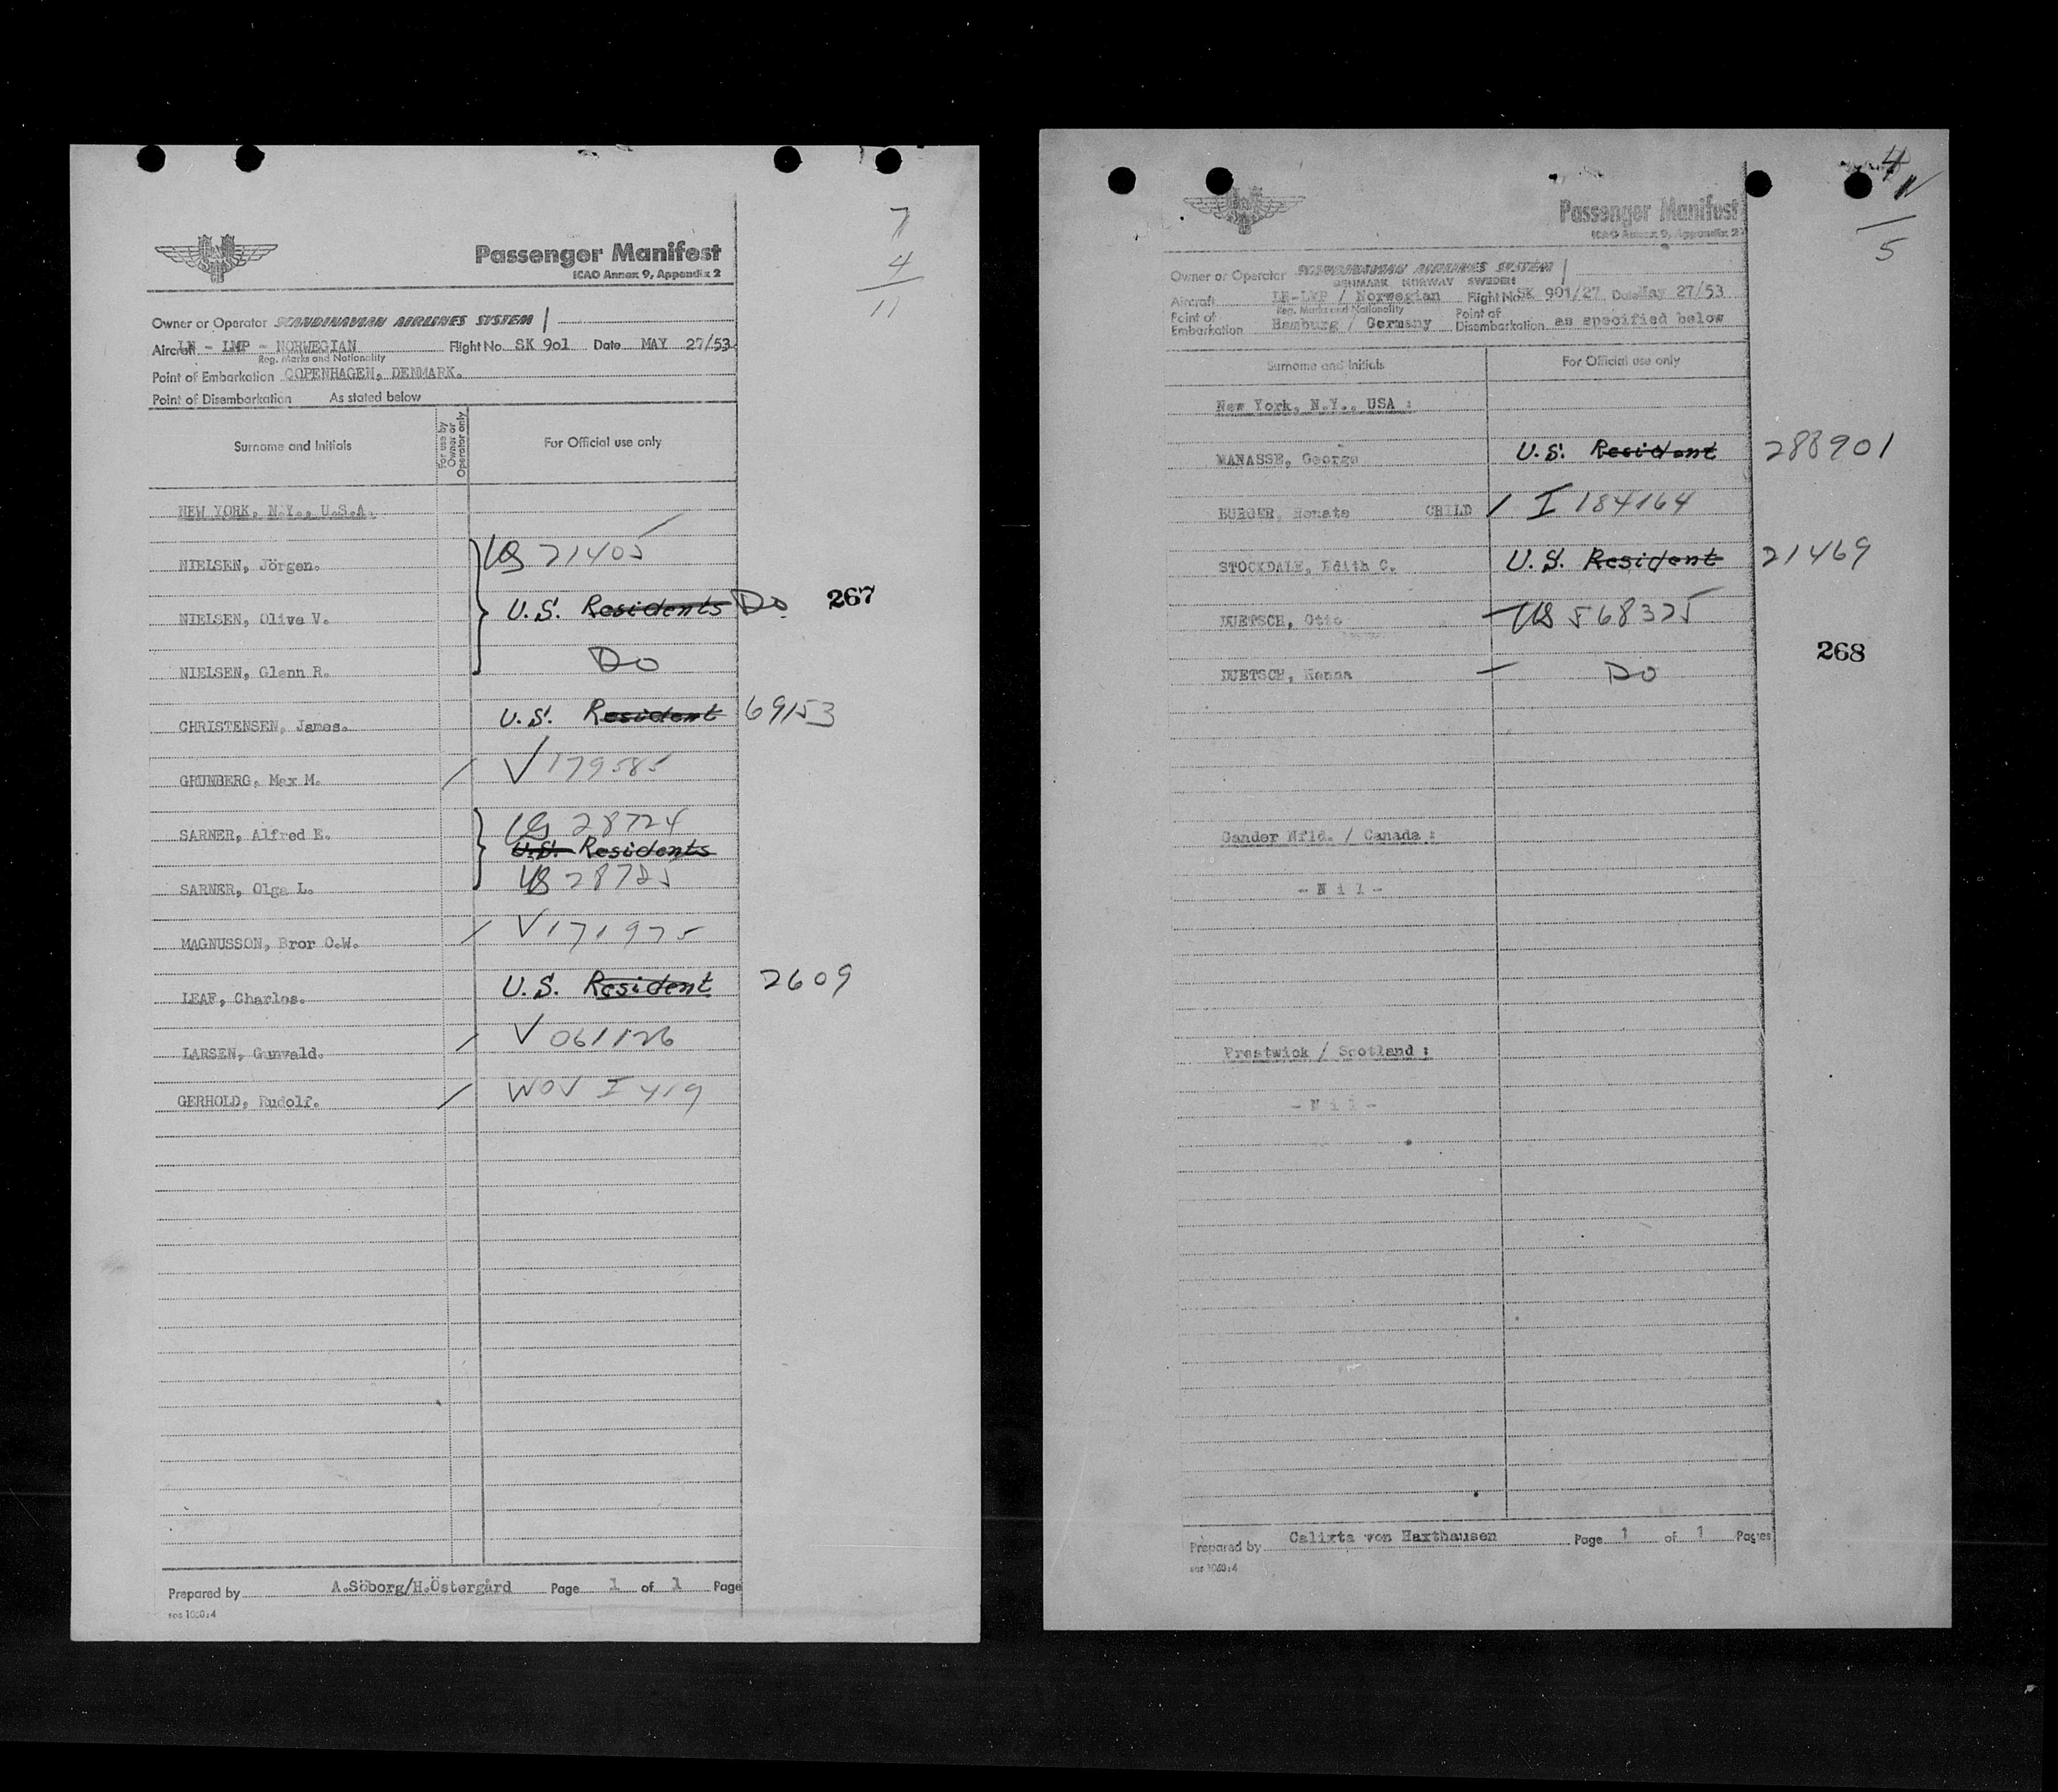 7
4
11
Passenger Manifest
ICAO Annex 9, Appendix 2
Owner or Operator SCANDINAVIAN AIRLINES SYSTEM
Aircraft LN - LMP - NORWEGIAN Flight No. SK 901 Date MAY 27/53
Reg. Marks and Nationality
Point of Embarkation COPENHAGEN, DENMARK.
Point of Disembarkation As stated below
Surname and Initials For use by Owner or Operator only For Official use only
NEW YORK, N.Y., U.S.A.
NIELSEN, Jörgen. US 21405
NIELSEN, Olive V. U.S. Residents Do 267
NIELSEN, Glenn R. Do
CHRISTENSEN, James. U.S. Resident 69153
GRUNBERG, Max M. / V 179585
SARNER, Alfred E. US 28724
U.S. Residents
SARNER, Olga L. US 28725
MAGNUSSON, Bror O.W. / V 171975
LEAF, Charles. U.S. Resident 2609
LARSEN, Gunvald. / V 061126
GERHOLD, Rudolf. / WOV I 419
Prepared by A.Söborg/H.Östergård Page 1 of 1 Page
sas 1060:4
4
5
Passenger Manifest
ICAO Annex 9, Appendix 2
Owner or Operator SCANDINAVIAN AIRLINES SYSTEM
DENMARK NORWAY SWEDEN
Aircraft LN-LMP / Norwegian Flight No. SK 901/27 Date May 27/53
Reg. Marks and Nationality
Point of Embarkation Hamburg / Germany Point of Disembarkation as specified below
Surname and Initials For Official use only
New York, N.Y., USA :
MANASSE, George U.S. Resident 288901
BURGER, Renate CHILD / I 184164
STOCKDALE, Edith C. U.S. Resident 21469
DUETSCH, Otto - US 568325
268
DUETSCH, Hanna - Do
Gander Nfld. / Canada :
- N i l -
Prestwick / Scotland :
- N i l -
Prepared by Calixta von Haxthausen Page 1 of 1 Pages
sas 1060:4